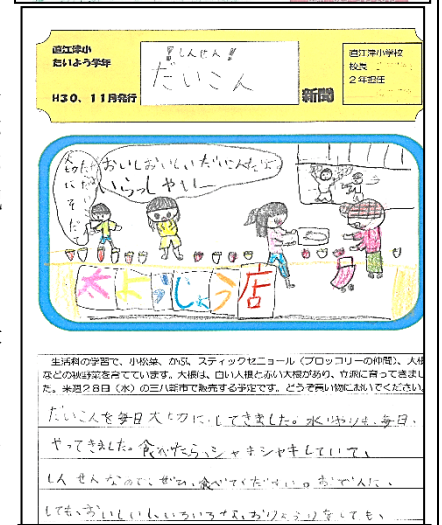 直江津小
たいよう学年
H30、11月発行
!しんせん!
だいこん
新聞
直江津小学校
校長
2年担任
おいしおいしいだいこんだよ
いらっしゃいー
太ようじょう店
生活科の学習で、小松菜、かぶ、スティックセニョール(ブロッコリーの仲間)、大根
などの秋野菜を育てています。大根は、白い大根と赤い大根があり、立派に育ってきまし
た。来週28日(水)の三八朝市で販売する予定です。どうぞ買い物においでください。
だいこんを毎日大切にしてきました。水やりも、毎日、
やってきました。食べたら、シャキシャキしていて、
しんせんなので、ぜひ、食べてください。おでんに、
しても、おいしいし、いろいろな、おりょうりをしても、